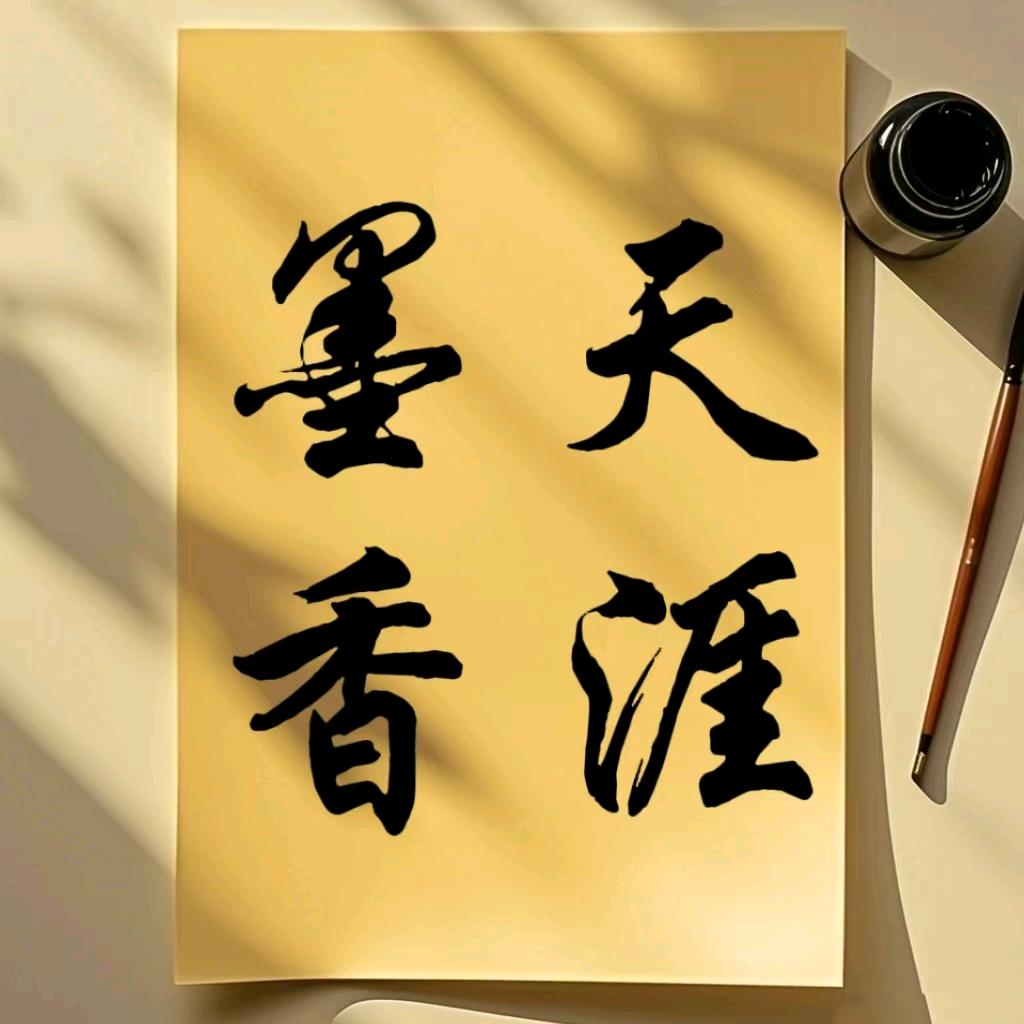 天涯
墨香